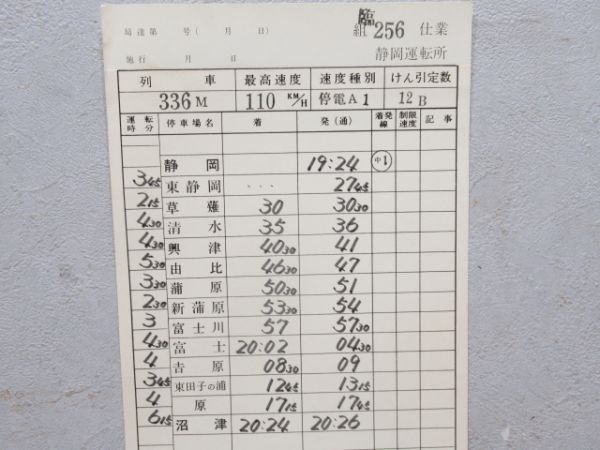 局達第 号( 月 日) 臨 組 256 仕業
施行 月 日 静岡運転所
列 車 最高速度 速度種別 けん引定数
336M 110 KM/H 停電A1 12B
運転時分 停車場名 着 発(通) 着発線 制限速度 記事
静岡 19:24 中1
3 45
東静岡 ... 27 45
2 15
草薙 30 30 30
4 30
清水 35 36
4 30
興津 40 30 41
5 30
由比 46 30 47
3 30
蒲原 50 30 51
2 30
新蒲原 53 30 54
3
富士川 57 57 30
4 30
富士 20:02 04 30
4
吉原 08 30 09
3 45
東田子の浦 12 45 13 15
4
原 17 15 17 45
6 15
沼津 20:24 20:26